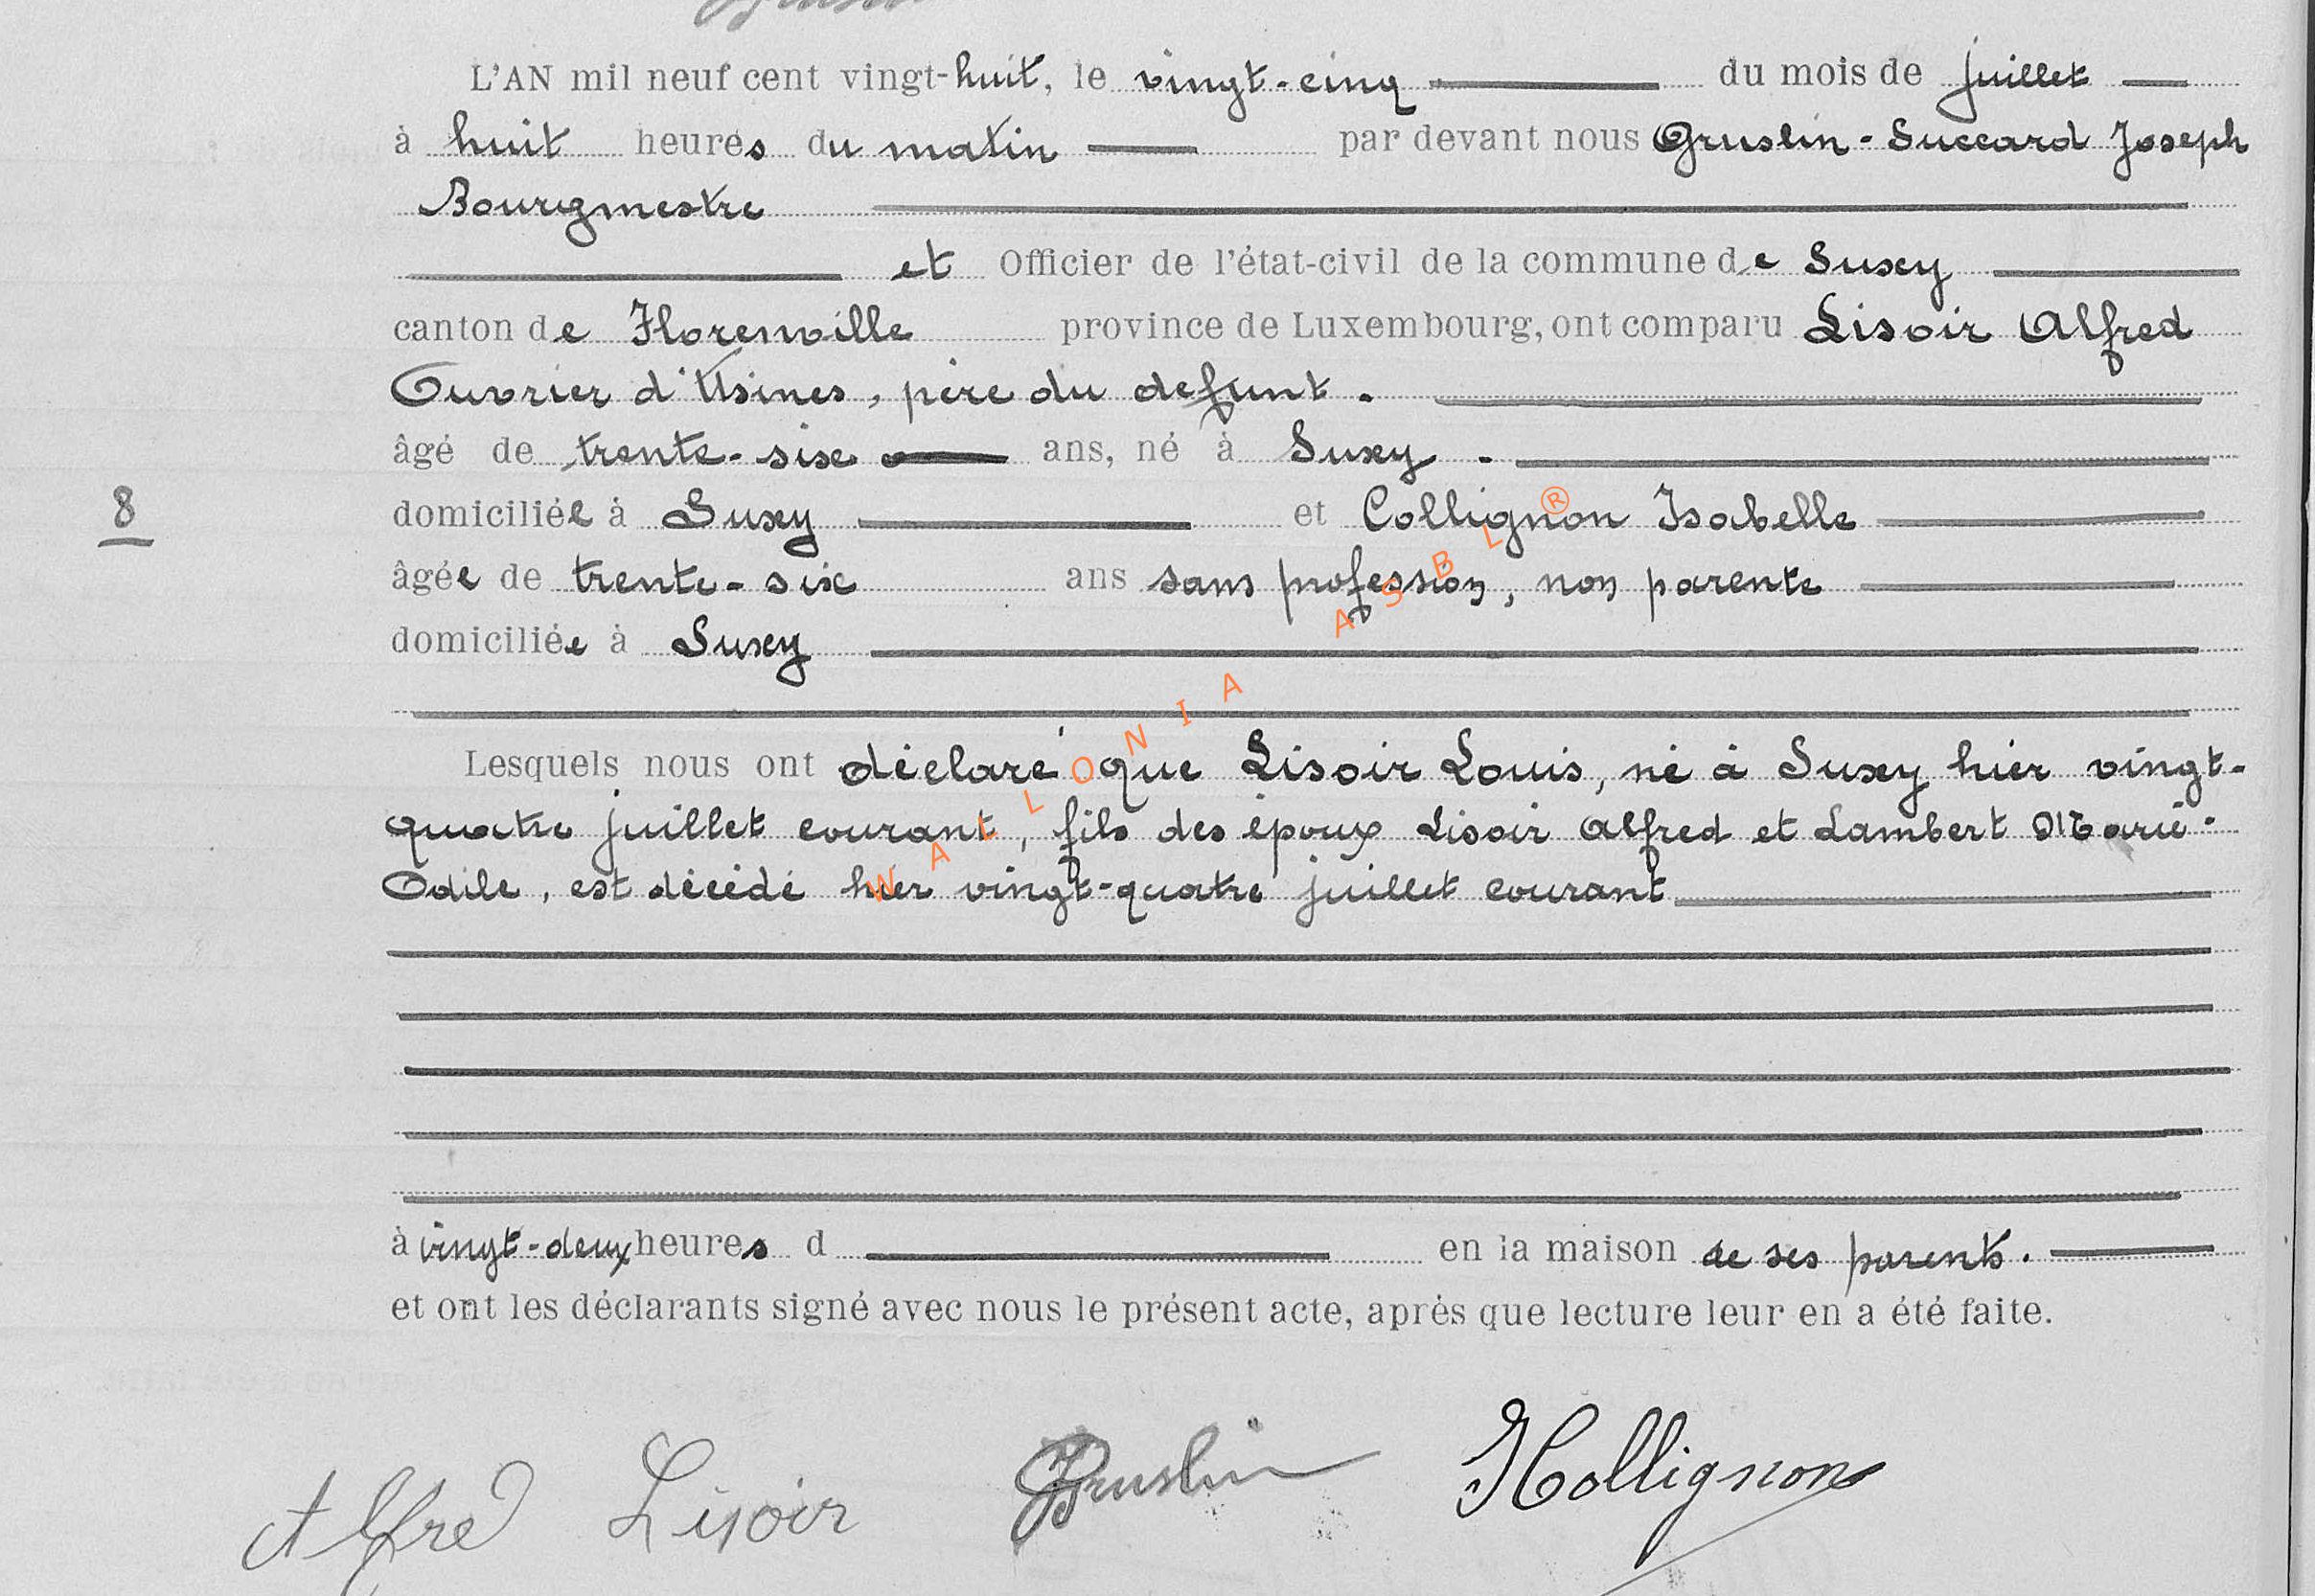 L'AN mil neuf cent vingt-huit, le vingt-cinq du mois de juillet
à huit heures du matin par devant nous Gruslin-Succard Joseph
Bourgmestre
et Officier de l'état-civil de la commune de Suxy
canton de Florenville province de Luxembourg, ont comparu Lisoir Alfred
Ouvrier d'Usines, père du defunt.
âgé de trente-six ans, né à Suxy.
8
domicilié à Suxy et Collignon Isabelle
âgée de trente-six ans sans profession, non parente
domiciliée à Suxy
Lesquels nous ont déclaré que Lisoir Louis, né à Suxy hier vingt-
quatre juillet courant, fils des époux Lisoir Alfred et Lambert Marie-
Odile, est décédé hier vingt-quatre juillet courant
WALLONIA ASBL®
à vingt-deux heures d en la maison de ses parents.
et ont les déclarants signé avec nous le présent acte, après que lecture leur en a été faite.
Alfred Lisoir Gruslin ICollignon